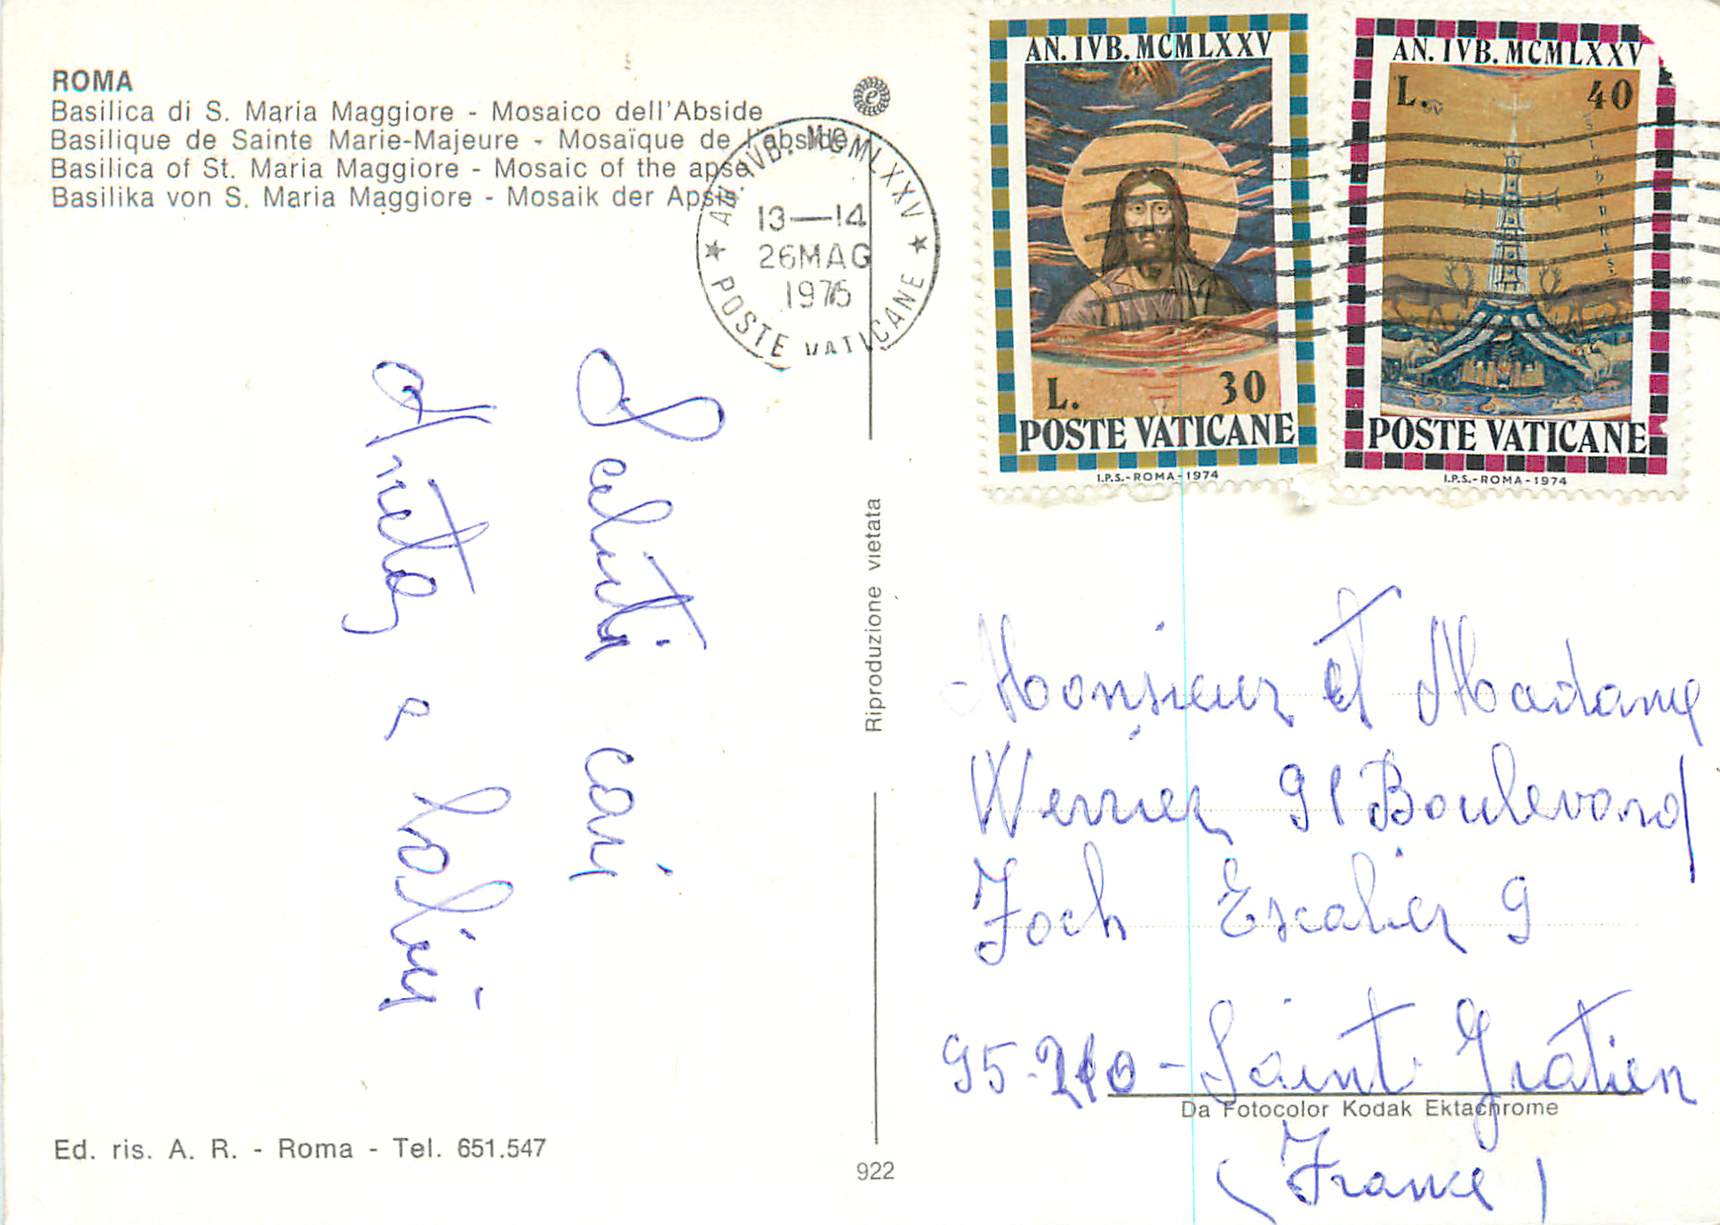 ROMA
Basilica di S. Maria Maggiore - Mosaico dell'Abside
Basilique de Sainte Marie-Majeure - Mosaïque de l'abside
Basilica of St. Maria Maggiore - Mosaic of the apse
Basilika von S. Maria Maggiore - Mosaik der Apsis
e
AN. IVB. MCMLXXV
13—14
26MAG
1975
POSTE VATICANE
AN. IVB. MCMLXXV
L. 30
POSTE VATICANE
I.P.S.-ROMA-1974
AN. IVB. MCMLXXV
L. 40
POSTE VATICANE
I.P.S.-ROMA-1974
Saluti cari
Anita e
Riproduzione vietata
Monsieur et Madame
Werrier 91 Boulevard
Foch Escalier 9
95-210-Saint Gratien
(France)
Da Fotocolor Kodak Ektachrome
Ed. ris. A. R. - Roma - Tel. 651.547
922